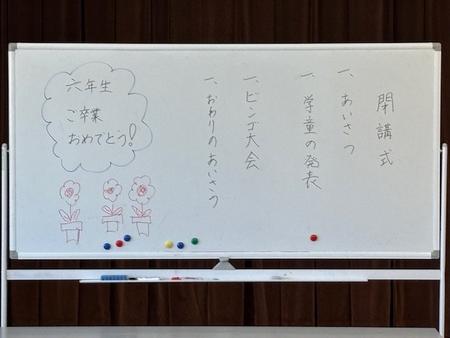 閉講式
一、あいさつ
一、学童の発表
一、ビンゴ大会
一、おわりのあいさつ
六年生
ご卒業
おめでとう!